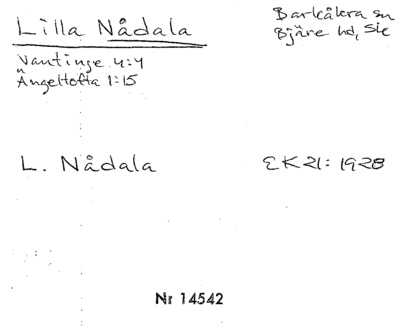 Lilla Nådala
Barkåkra sn
Bjäre hd, Sk
Vantinge 4:4
Ängeltofta 1:15
L. Nådala
EK21: 1928
Nr 14542